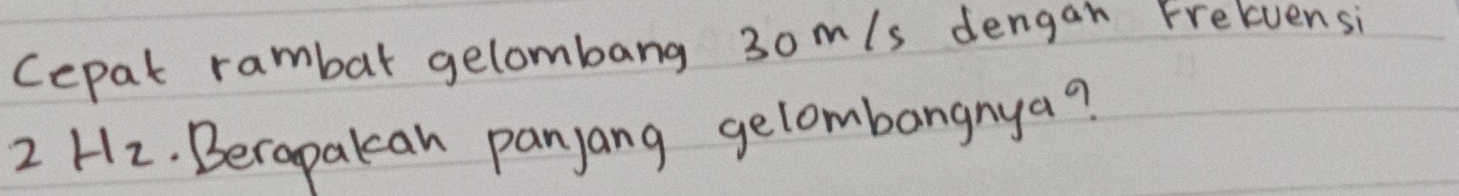 Cepat rambat gelombang 30 m/s dengan Frekuensi
2 Hz. Berapakah panjang gelombangnya?